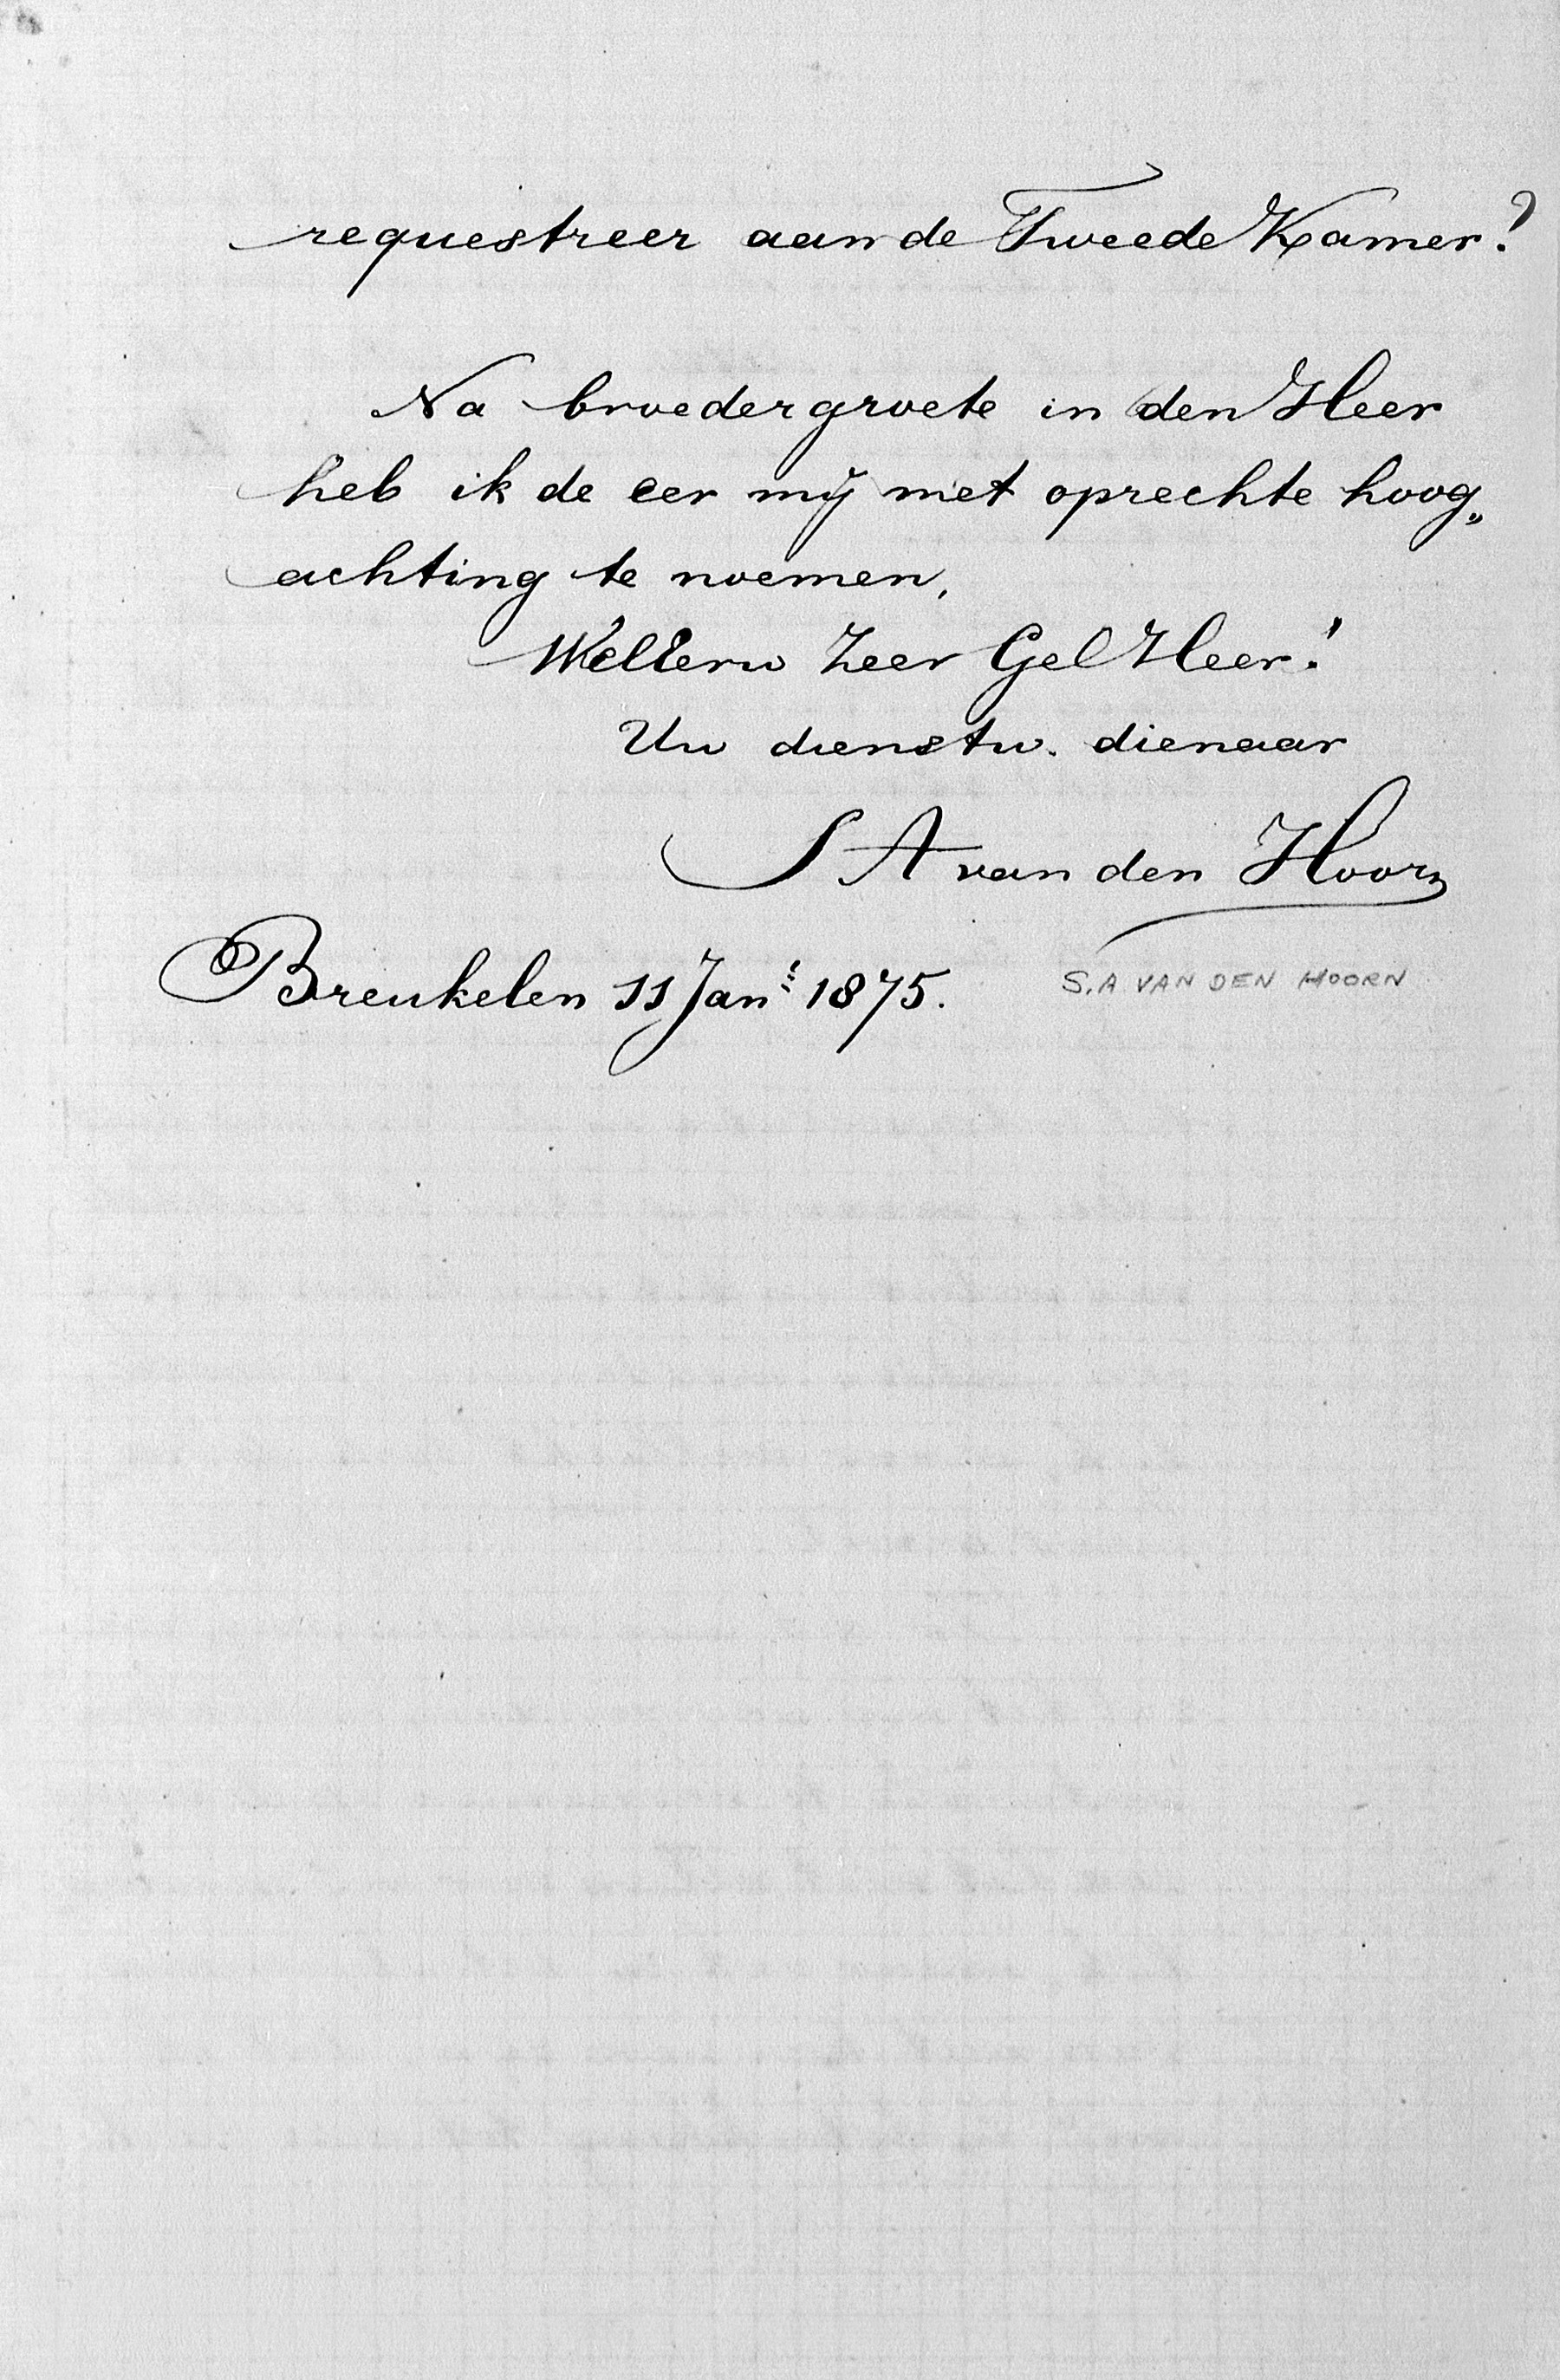 requestreer aan de Tweede Kamer?
Na broedergroete in den Heer
heb ik de eer mij met oprechte hoog„
achting te noemen,
WelEerw Zeer Gel Heer!
Uw dienstw. dienaar
S A van den Hoorn
Breukelen 11 Jan: 1875.
S.A VAN DEN HOORN